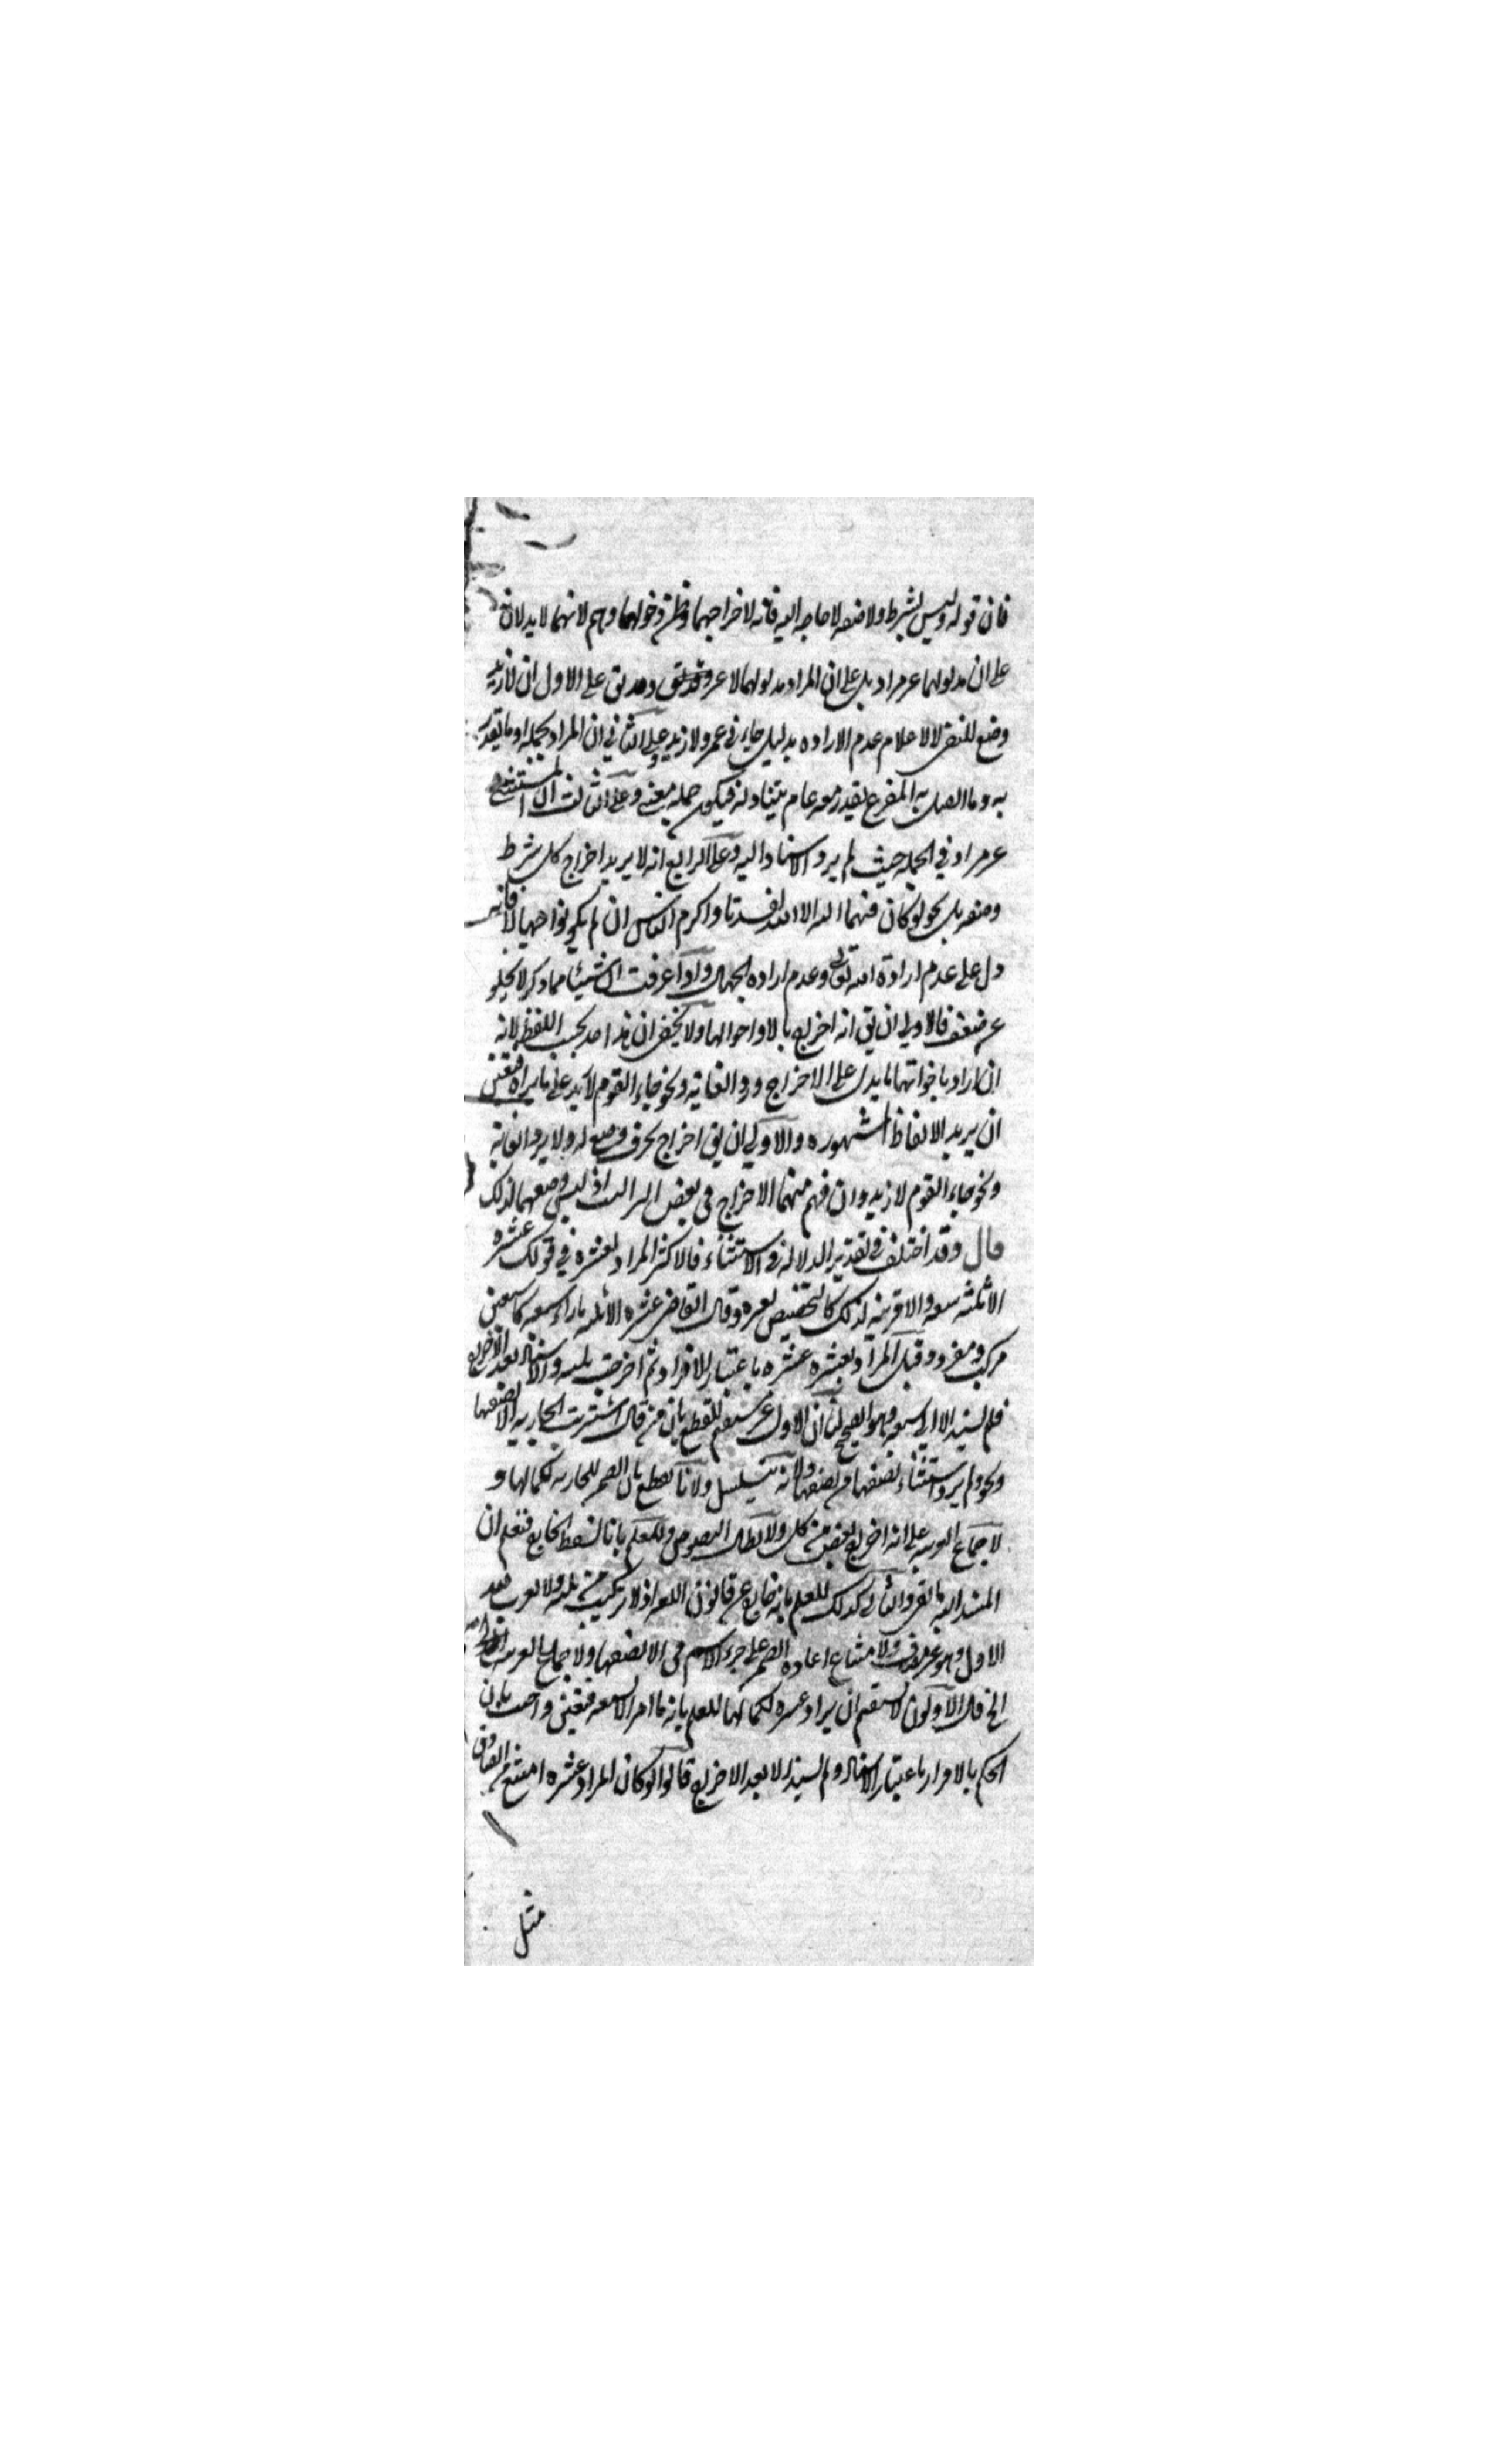 فان قوله وليس بشرط ولا صفه لا حاجه اليه فانه لاخراجهما وظن دخولهما وهم لانهما لا يدلان
على ان مدلولهما غير مراد بل على ان المراد مدلولهما لا غير وقد يق على الاول ان لا زيد
وضع للنفى لا لاعلام عدم الاراده بدليل جاءنى عمرو لا زيد وعلى الثانى ان المراد بجمله او ما يقدر
به وما اتصل به المفرغ يقدر معه عام يتناوله فيكون جمله معنى وعلى الثالث ان المستثنى
غير مراد فى الجمله حيث لم يرد الاسناد اليه وعلى الرابع انه لا يريد اخراج كل شرط
وصفه بل نحو لو كان فيهما الهه الا الله لفسدتا واكرم الناس ان لم يكونوا جهالا فانه
دل على عدم ارادة الله تعالى وعدم اراده الجهال واذا عرفت ان شيئا مما ذكر لا يخلو
عن ضعف فالاولى ان يق انه اخراج بالا واخواتها ولا يخفى ان هذا حد بحسب اللفظ لانه
ان اراد باخواتها ما يدل على الاخراج ورد الغايه ونحو جاء القوم لا زيد على ما يراه فتعين
ان يريد الالفاظ المشهوره والاولى ان يق اخراج بحرف وضع له ولا يرد الغايه
ونحو جاء القوم لا زيد وان فهم منهما الاخراج فى بعض التراكيب اذ ليس وضعهما لذلك
قال وقد اختلف فى تقدير الدلاله فى الاستثناء فالاكثر المراد بعشره فى قولك عشره
الا ثلثه سبعه والا قرينه لذلك كالتخصيص بغيره وقال القاضى عشره الا ثلثه بازاء سبعه كاسمين
مركب ومفرد وقيل المراد بعشره عشره باعتبار الافراد ثم اخرجت ثلثه والاسناد بعد الاخراج
فلم يسند الا الى سبعه وهو الصحيح لنا ان الاول غير مستقيم للقطع بان من قال اشتريت الجاريه الا نصفها
ونحوه لم يرد استثناء نصفها من نصفها ولانه يتسلسل ولانا نقطع بان الضمير للجاريه بكمالها و
لاجماع العربيه على انه اخراج بعض من كل ولابطال النصوص وللعلم بانا نسقط الخارج فنعلم ان
المسند اليه ما بقى والثانى كذلك للعلم بانه خارج عن قانون اللغه اذ لا تركيب من ثلثه ولا يعرب فيه
الاول وهو غير مضاف ولامتناع اعاده الضمير على جزء الاسم فى الا نصفها ولاجماع العربيه انه اخراج
الخ قال الاولون لا يستقيم ان يراد عشره بكمالها للعلم بانه ما اقر الا بسبعه فتعين واجيب بان
الحكم بالاقرار باعتبار الاسناد ولم يسند الا بعد الاخراج قالوا لو كان المراد عشره امتنع من الصادق
مثل